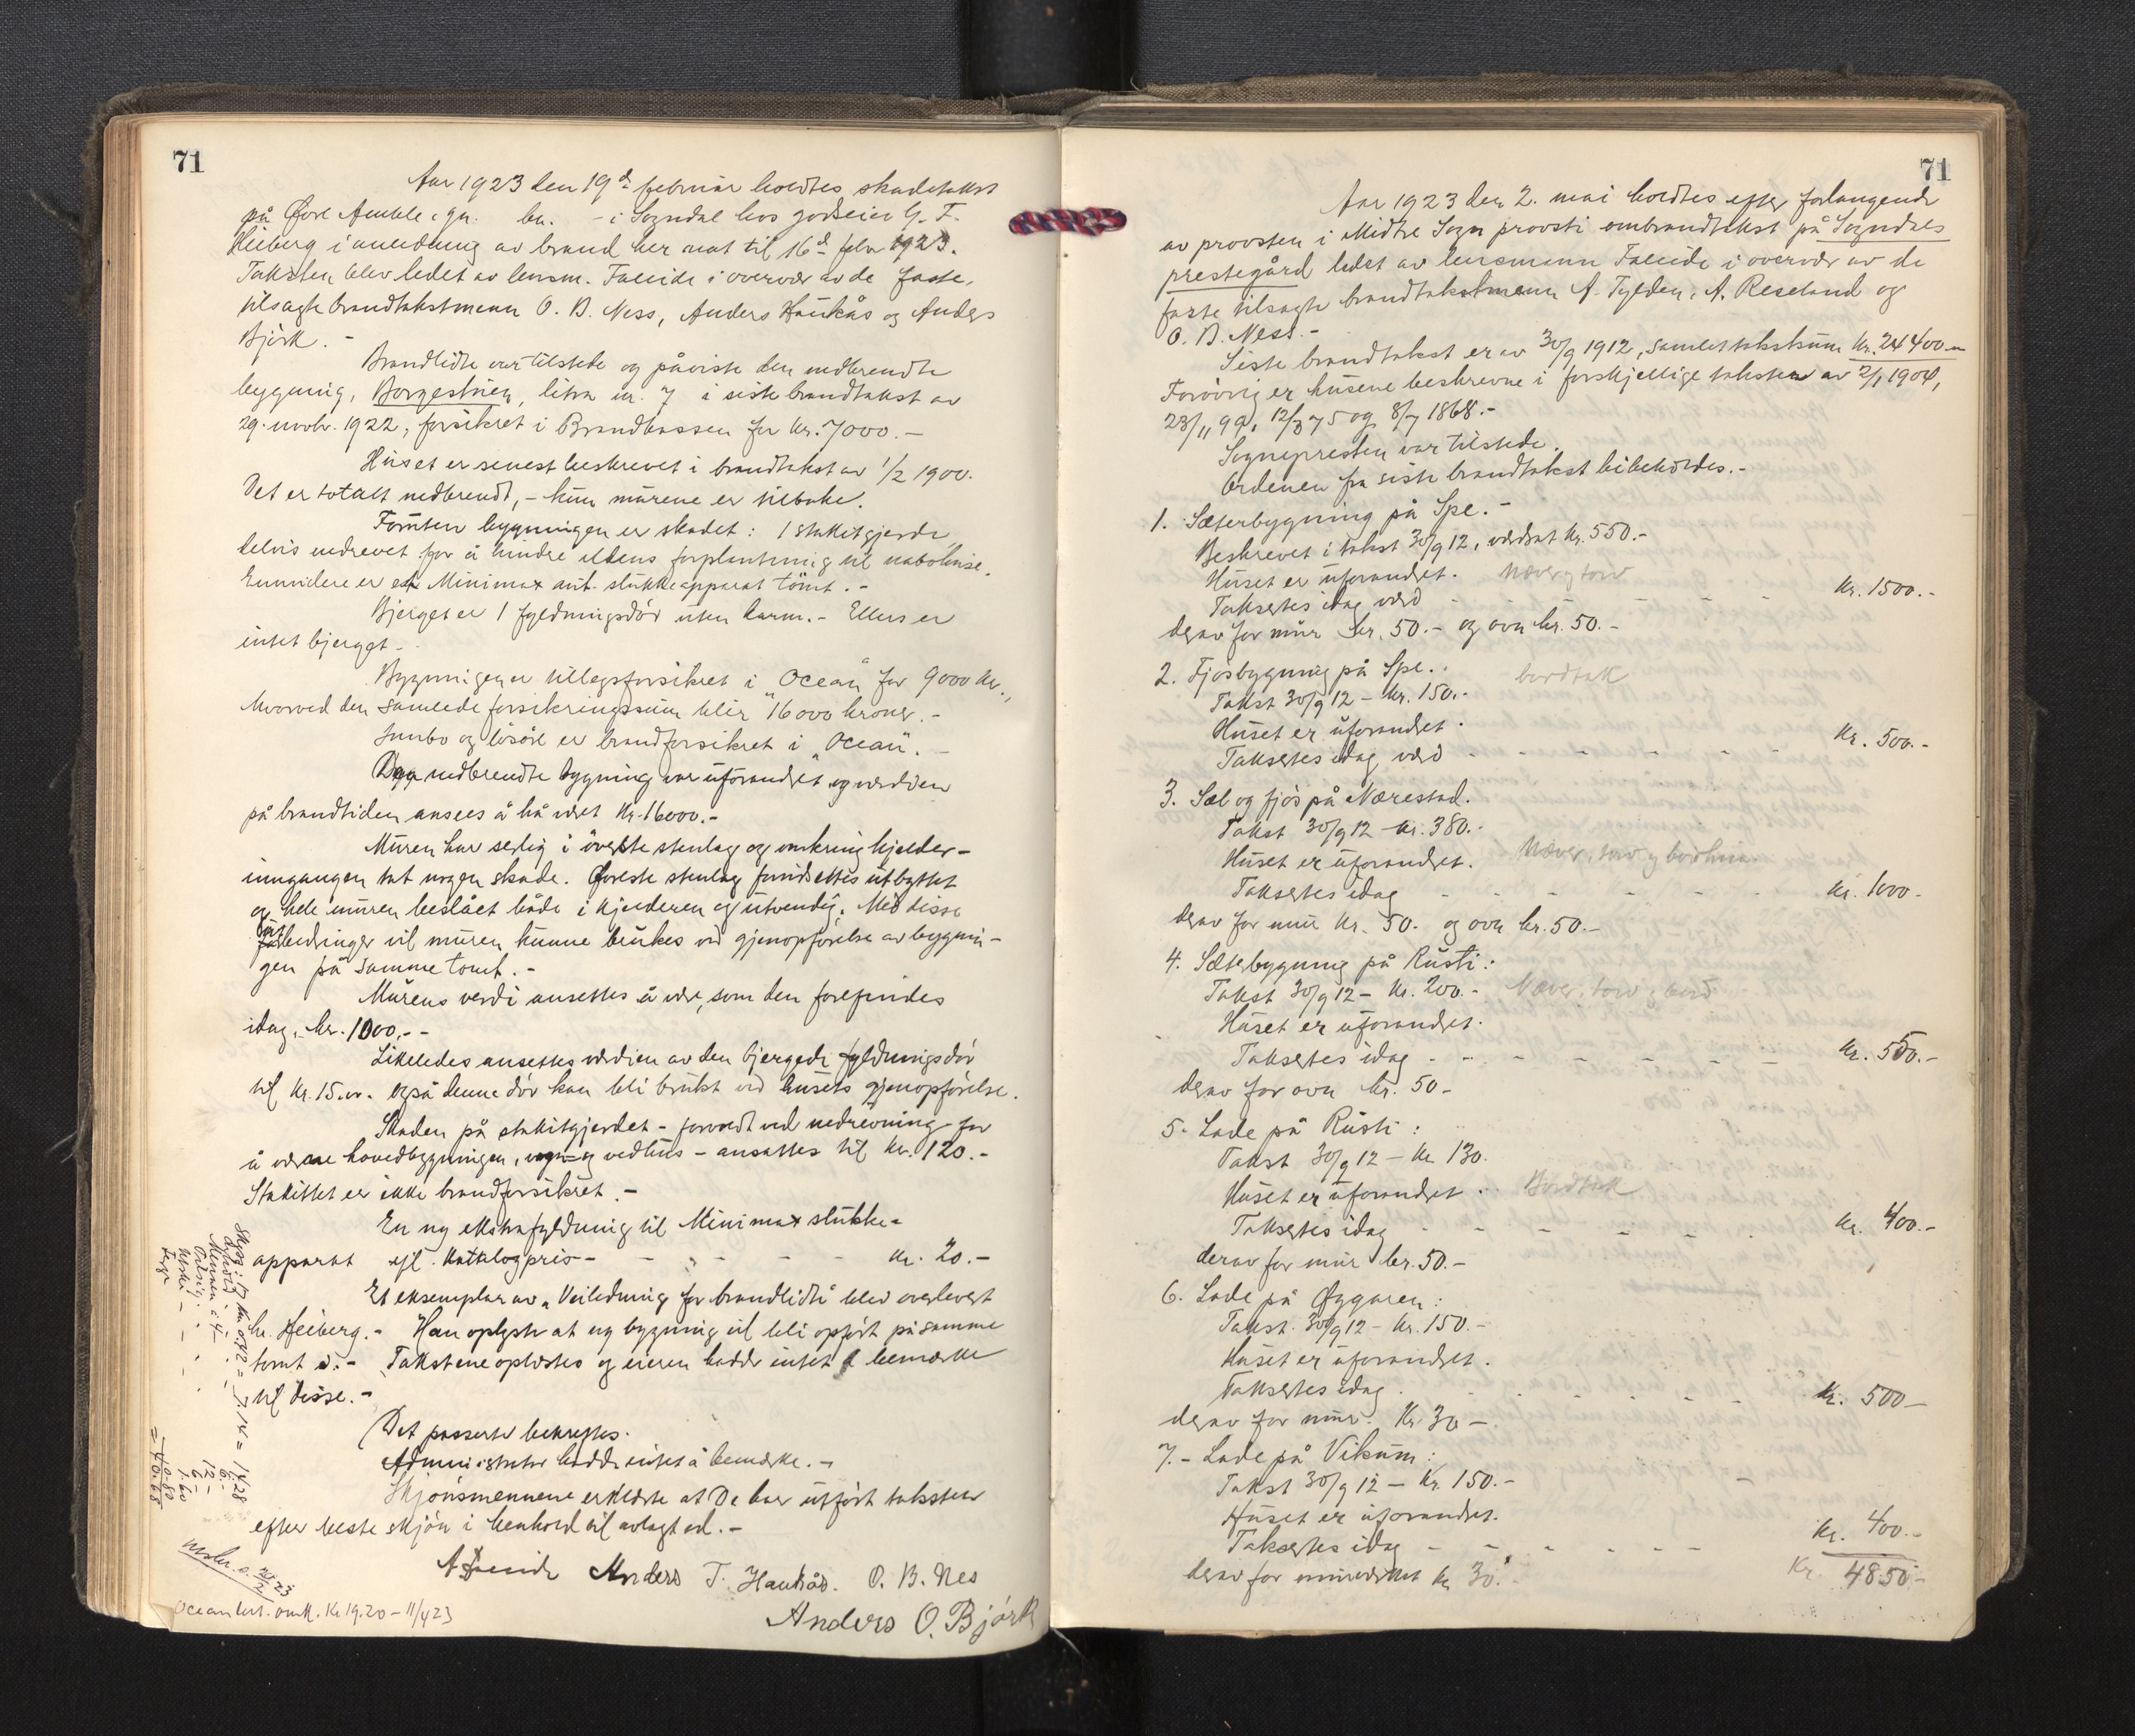 71
Aar 1923 den 19de februar holdtes skadetakst
på Øvre Amble, gn. bn. - i Sogndal hos godseier G. F.
Heiberg i anledning av brand her nat til 16de febr 1923.
Taksten blev ledet av lensm. Faleide i overvær av de faste,
tilsagte brandtakstmenn O. B. Ness, Anders Haukås og Anders
Bjørk. -
Brandlidte var tilstede og påviste den nedbrendte
bygning, Borgestuen, litra nr. 7 i siste brandtakst av
29. novbr. 1922, forsikret i Brandkassen for kr. 7000.-
Huset er senest beskrevet i brandtakst av 1/2 1900.
Det er totalt nedbrendt, - kun murene er tilbake.
Foruten bygningen er skadet: 1 stakitgjerde
delvis nedrevet for å hindre ildens forplantning til nabohuse.
Enn videre er et Minimax aut. slukkeapparat tømt. -
Bjerget er 1 fyldningsdør uten karm. - Ellers er
intet bjerget -
Bygningen er tillegsforsikret i "Ocean" for 9000 kr.,
hvorved den samlede forsikringssum blir 16000 kroner. -
Innbo og løsøre er brandforsikret i "Ocean". -
Den nedbrendte bygning var uforandret og verdien
på brandtiden ansees å ha været kr. 16000.-
Muren har serlig i øverste stenlag og omkring kjelder-
inngangen tat nogen skade. Øverste stenlag forutsettes utbyttet
og hele muren beslået både i kjelderen og utvendig. Med disse
utbedringer vil muren kunne brukes ved gjenopførelse av bygnin-
gen på samme tomt. -
Murens verdi ansettes å være, som den forefindes
idag, kr. 1000.--
Likeledes ansettes verdien av den bjergede fyldningsdør
til kr. 15.00. Også denne dør kan bli brukt ved husets gjenopførelse.
Skaden på stakitgjerdet - forvoldt ved nedrevning for
å værne hovedbygningen, og vedhus - ansattes til kr. 120.-
Stakittet er ikke brandforsikret. -
En ny ekstrafyldning til Minimax slukke-
apparat efl. katalogpris - - - - - kr. 20.-
Et eksemplar av "Veiledning for brandlidte" blev overlevert
hr. Heiberg. - Han oplyste at ny bygning vil bli opført på samme
tomt. - Takstene oplestes og eieren hadde intet å bemerke
til disse. -
Det passerte bekreftes.
Administrator hadde intet å bemerke. -
Skjønsmennene erklærte at De har utført taksten
efter beste skjøn i henhold til avlagt ed. -
A Faleide Anders T. Haukås. O. B. Nes
Anders O. Bjørk
Ocean bet. omk. Kr 19.20 - 11/4 23
71
Aar 1923 den 2. mai holdtes efter forlangende
av provsten i Midtre Sogn provsti ombrandtakst på Sogndals
prestegård ledet av lensmann Faleide i overvær av de
faste tilsagte brandtakstmenn A. Tylden, A. Reseland og
O. B. Ness. -
Siste brandtakst er av 30/9 1912, samlet takstsum kr. 24400.-
Forøvrig er husene beskrevne i forskjellige takster av 2/1 1904,
23/11 99, 12/3 75 og 8/7 1868. -
Sognepresten var tilstede.
Ordenen fra siste brandtakst bibeholdes. -
1. Sæterbygning på Spe. -
Beskrevet i takst 30/9 12, værdsat kr. 550.-
Huset er uforandret. Næver og torv
Takseres idag værd - - - - - kr. 1500.-
derav for mur kr. 50.- og ovn kr. 50.-
2. Fjøsbygning på Spe. bordtak
Takst 30/9 12 - kr. 150.-
Huset er uforandret.
Takseres idag værd - - - - - kr. 500.-
3. Sæl og fjøs på Nærestad.
Takst 30/9 12 - kr. 380.-
Huset er uforandret. Næver, torv og
Takseres idag - - - - - kr. 1000.
derav for mur kr. 50. og ovn kr. 50.-
4. Sæterbygning på Rusti:
Takst 30/9 12 - kr. 200.- Næver, torv og bord
Huset er uforandret.
Takseres idag - - - - - kr. 550.-
derav for ovn kr. 50-
5. Lade på Rusti:
Takst 30/9 12 - kr 130.
Huset er uforandret. Bordtak
Takseres idag - - - - - kr. 400.-
derav for mur kr. 50.-
6. Lade på Øygaren:
Takst 30/9 12 - kr. 150.-
Huset er uforandret.
Takseres idag - - - - - kr. 500-
derav for mur. kr 30-
7. - Lade på Vikum:
Takst 30/9 12 - kr. 150.-
Huset er uforandret.
Takseres idag - - - - - kr. 400.-
derav for murværket kr 30.-
kr. 4850-